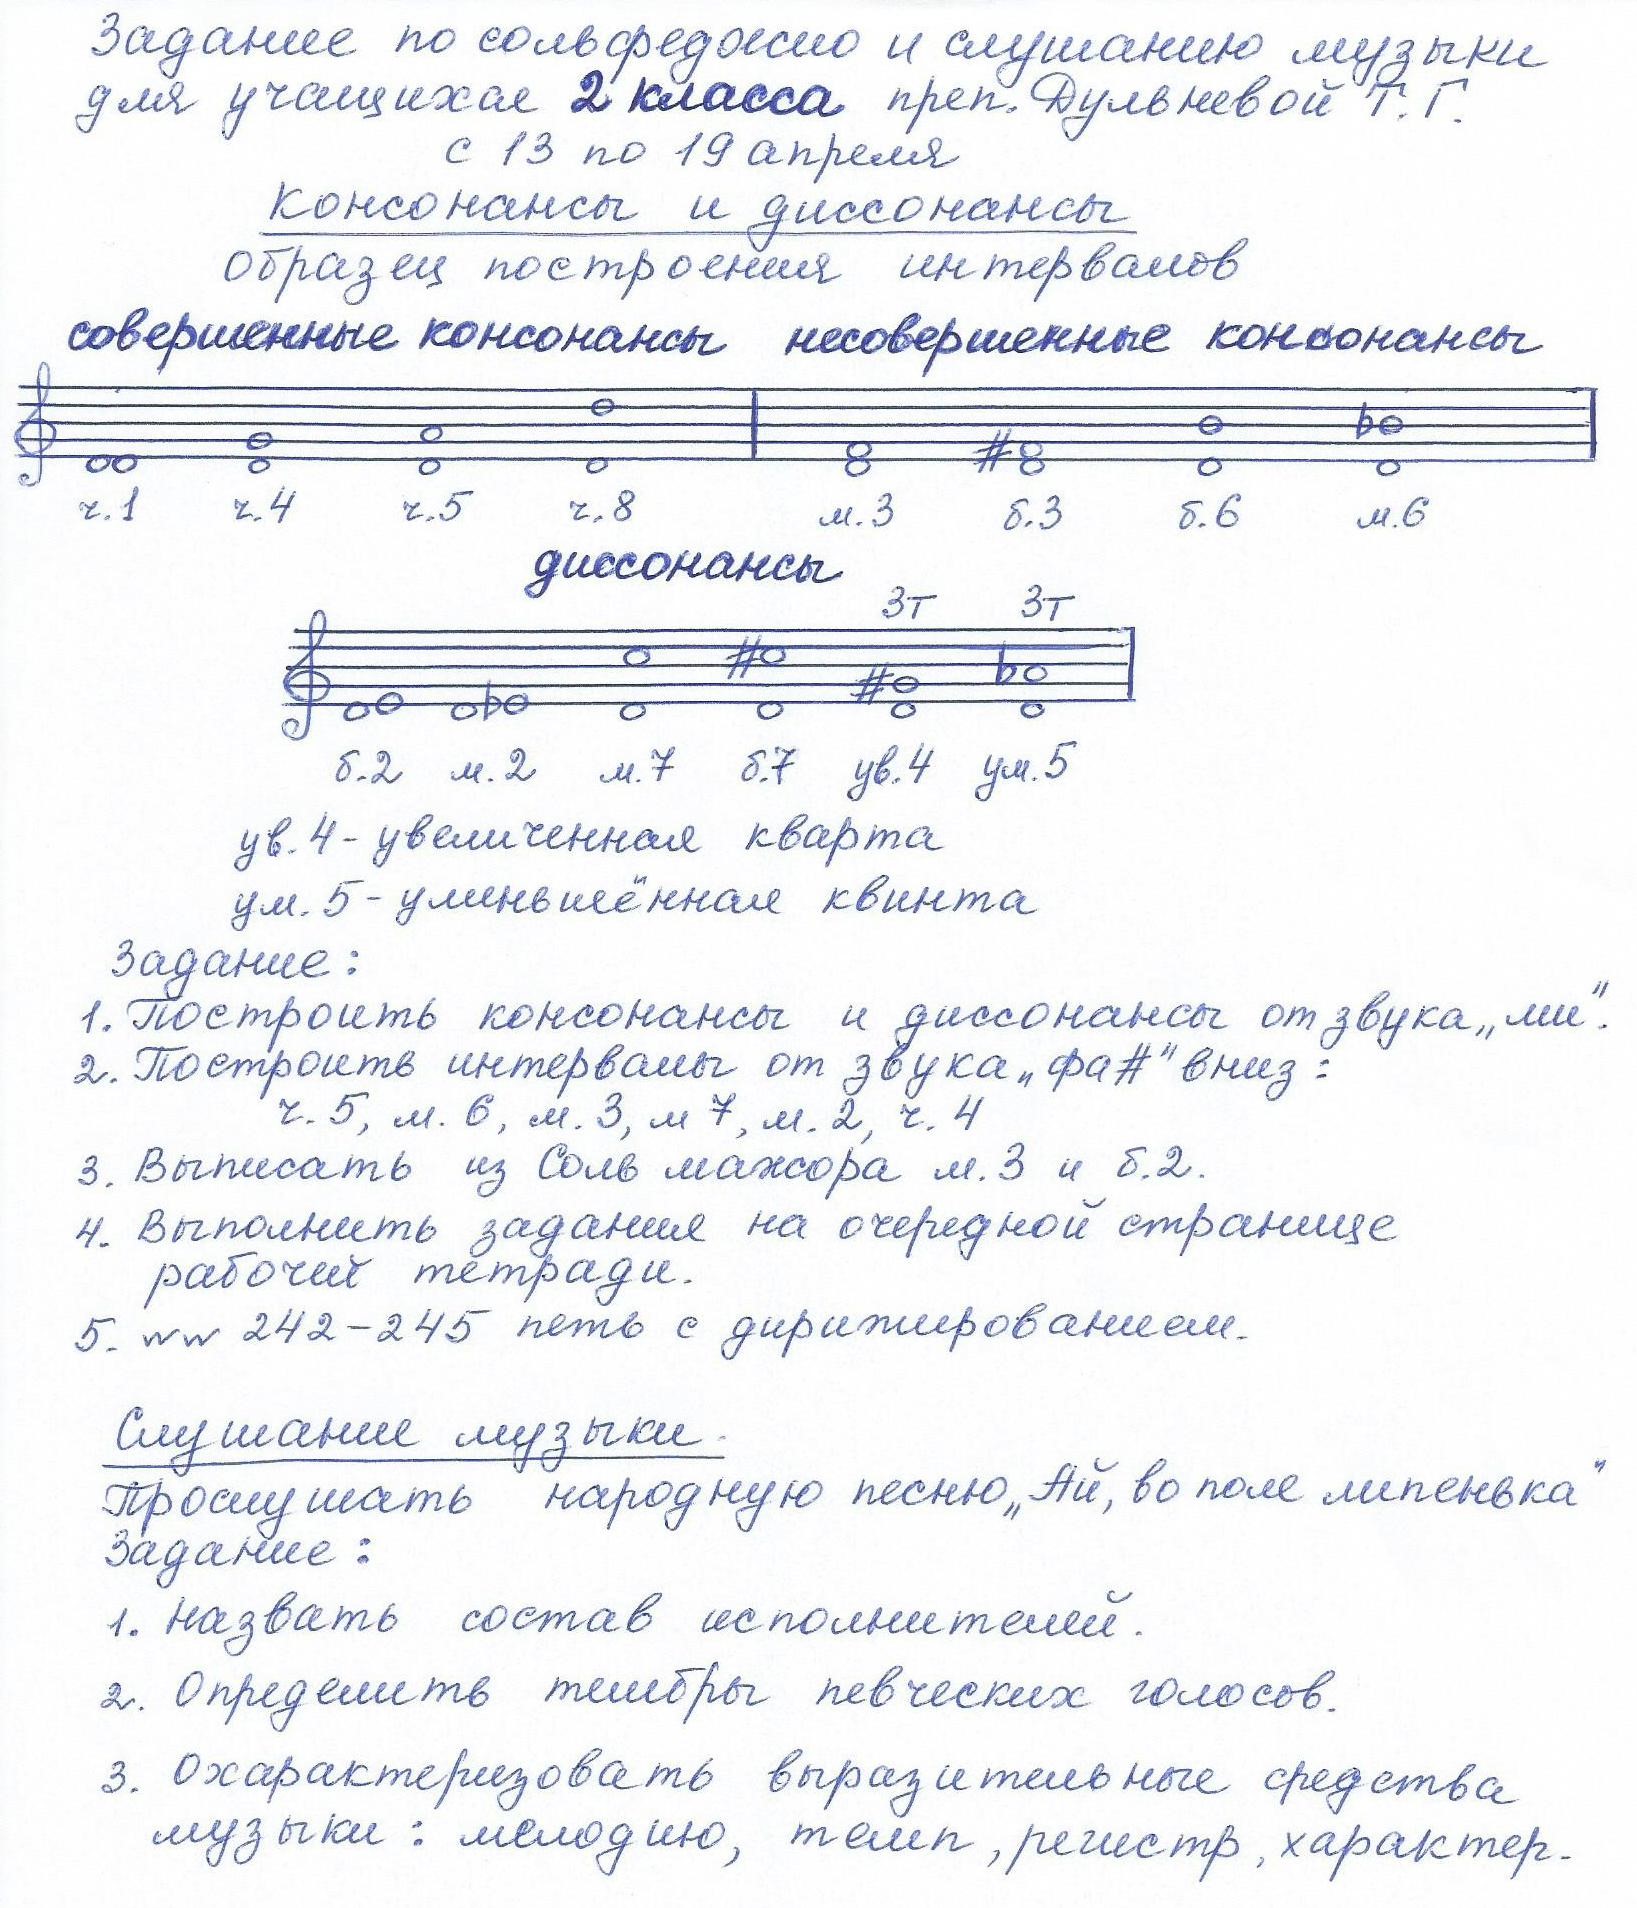 Задание по сольфеджио и слушанию музыки
для учащихся 2 класса преп. Дульневой Т.Г.
с 13 по 19 апреля
Консонансы и диссонансы
Образец построения интервалов
совершенные консонансы несовершенные консонансы
ч.1 ч.4 ч.5 ч.8 м.3 б.3 б.6 м.6
диссонансы
3т 3т
б.2 м.2 м.7 б.7 ув.4 ум.5
ув.4 - увеличенная кварта
ум.5 - уменьшённая квинта
Задание:
1. Построить консонансы и диссонансы от звука „ми".
2. Построить интервалы от звука „фа#" вниз:
ч.5, м.6, м.3, м7, м.2, ч.4
3. Выписать из Соль мажора м.3 и б.2.
4. Выполнить задания на очередной странице
рабочей тетради.
5. №№ 242-245 петь с дирижированием.
Слушание музыки.
Прослушать народную песню „Ай, во поле липенька"
Задание:
1. Назвать состав исполнителей.
2. Определить тембры певческих голосов.
3. Охарактеризовать выразительные средства
музыки: мелодию, темп, регистр, характер.